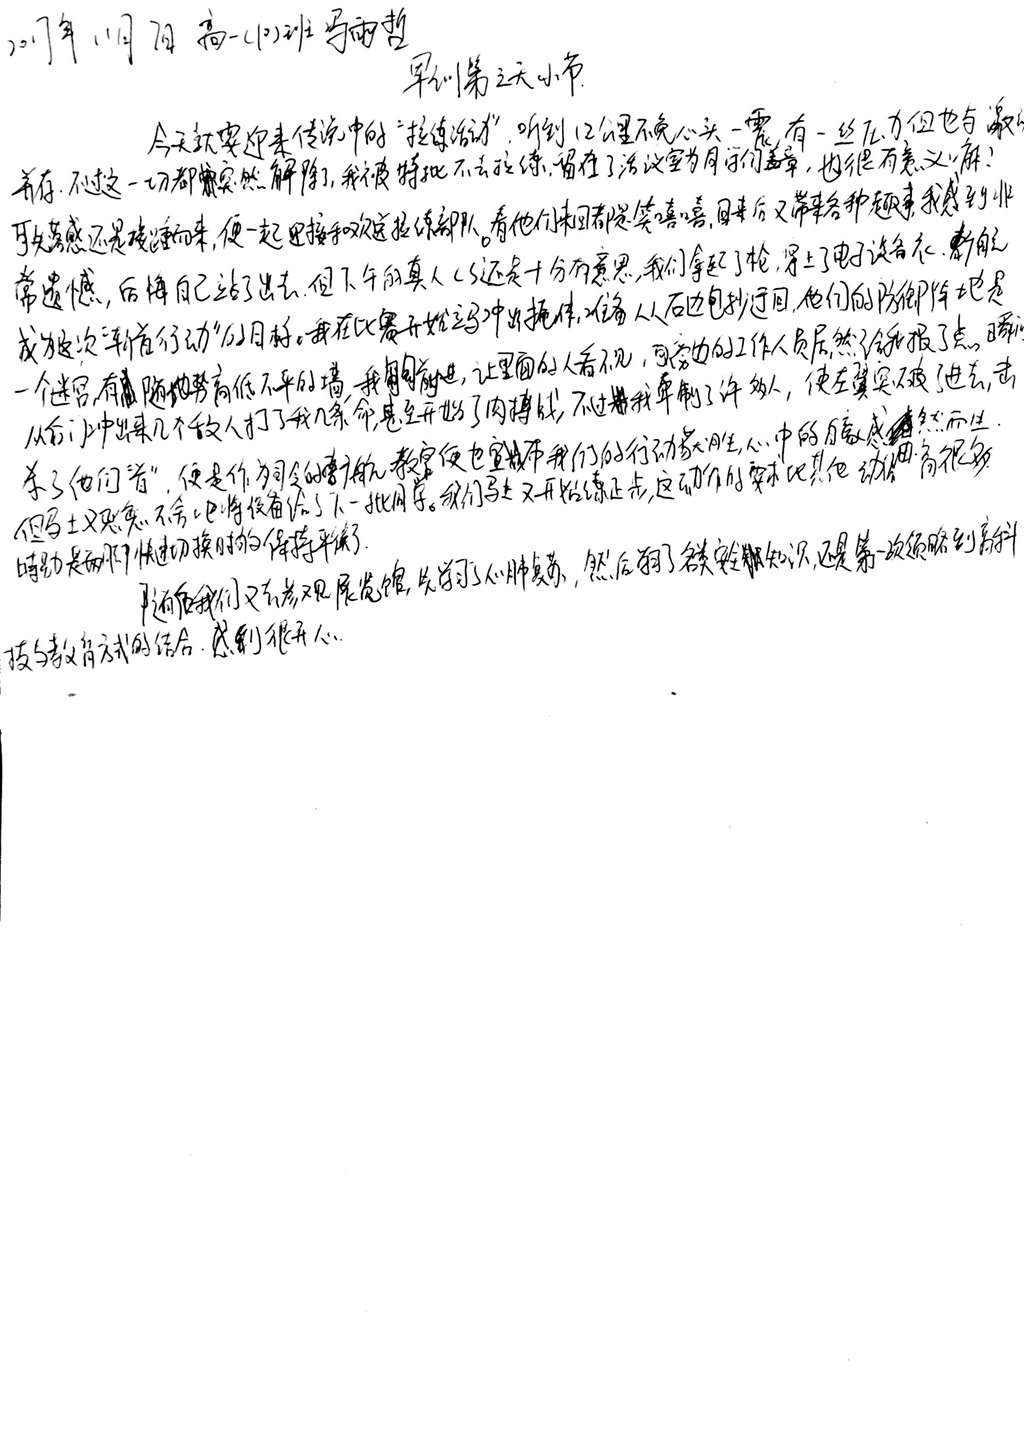 2017年11月7日 高一(10)班 冯雨哲
军训第三天小节
今天就要迎来传说中的“拉练活动”，听到12公里不免心头一震，有一丝压力但也与激动
并存。不过这一切都突然解除了，我被特批不去拉练，留在了活议室为同学们盖章，也很有意义嘛！
可失落感还是接踵而来，便一起迎接和欢送拉练部队。看他们来回都是笑嘻嘻，回来后又带来各种趣事，我感到非
常遗憾，后悔自己站了出去。但下午的真人CS还是十分有意思，我们拿起了枪，穿上了电子设备衣。新航
成为这次“斩首行动”的目标。我在比赛开始立马冲出掩体，准备从右边包抄过回，他们的防御阵地是
一个迷宫，有随地势高低不平的墙，我匍匐前进，让里面的人看不见，可旁边的工作人员居然给我报了点。瞬间
从后门冲出来几个敌人打了我几条命，甚至开始了肉搏战，不过我牵制了许多人，使左翼突破了进去，击
杀了他们“首”，便是作为司令的新航，教官便也宣布我们的行动获胜，心中的自豪感油然而生。
但马上又恋恋不舍地将设备给了下一批同学。我们马上又开始练正步，这动作的要求比其他动作高很多
特别是两脚快速切换时的保持平衡了。
随后我们又去参观展览馆，先学习了心肺复苏，然后学了各类安全知识，还是第一次领略到高科
技与教育方式的结合，感到很开心。